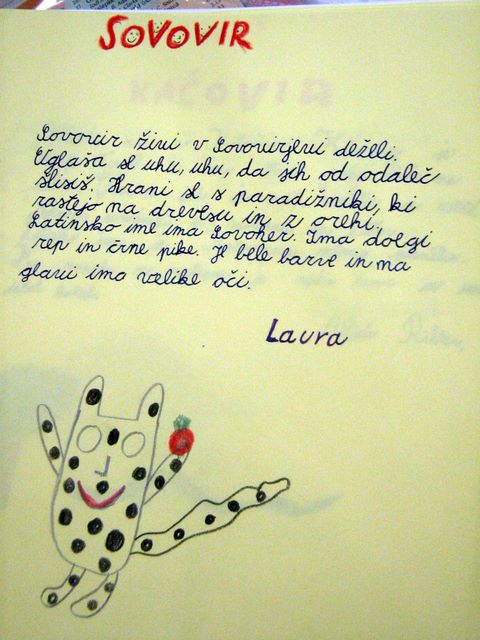 SOVOVIR
Sovovir živi v Sovovirjevi deželi.
Uglaša se uhu, uhu, da jih od odaleč
slisiš. Hrani se s paradižniki, ki
rastejo na drevesu in z orehi.
Latinsko ime ima Sovoher. Ima dolgi
rep in črne pike. Je bele barve in na
glavi ima velike oči.
Laura